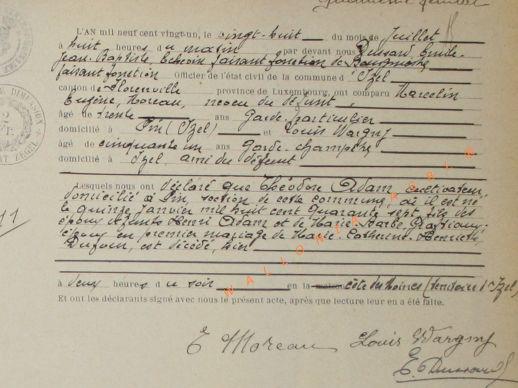 L'AN mil neuf cent vingt-un, le vingt-huit du mois de Juillet
à huit heures du matin par devant nous Dussard Emile
Jean Baptiste, Echevin faisant fonction de Bourgmestre
faisant fonction Officier de l'état civil de la commune d' Izel
canton de Florenville province de Luxembourg, ont comparu Marcelin
Eugène, Moreau, neveu du défunt
âgé de trente ans Garde particulier
domicilié à Pin (Izel) et Louis Wargny
âgé de cinquante un ans Garde-champêtre
domicilié à Izel, ami du défunt
Lesquels nous ont déclaré que Théodore Adam, cultivateur,
domicilié à Pin, section de cette commune, où il est né
le quinze Janvier mil huit cent quarante sept, fils des
époux défunts Henri Adam et de Marie Barbe
époux en premier mariage de Marie Catherine Henriette
Dufour, est décédé, hier
à deux heures du soir en la côte des Moines (territoire d'Izel)
Et ont les déclarants signé avec nous le présent acte, après que lecture leur en a été faite.
E Moreau Louis Wargny
E. Dussard
11
WALLONIA